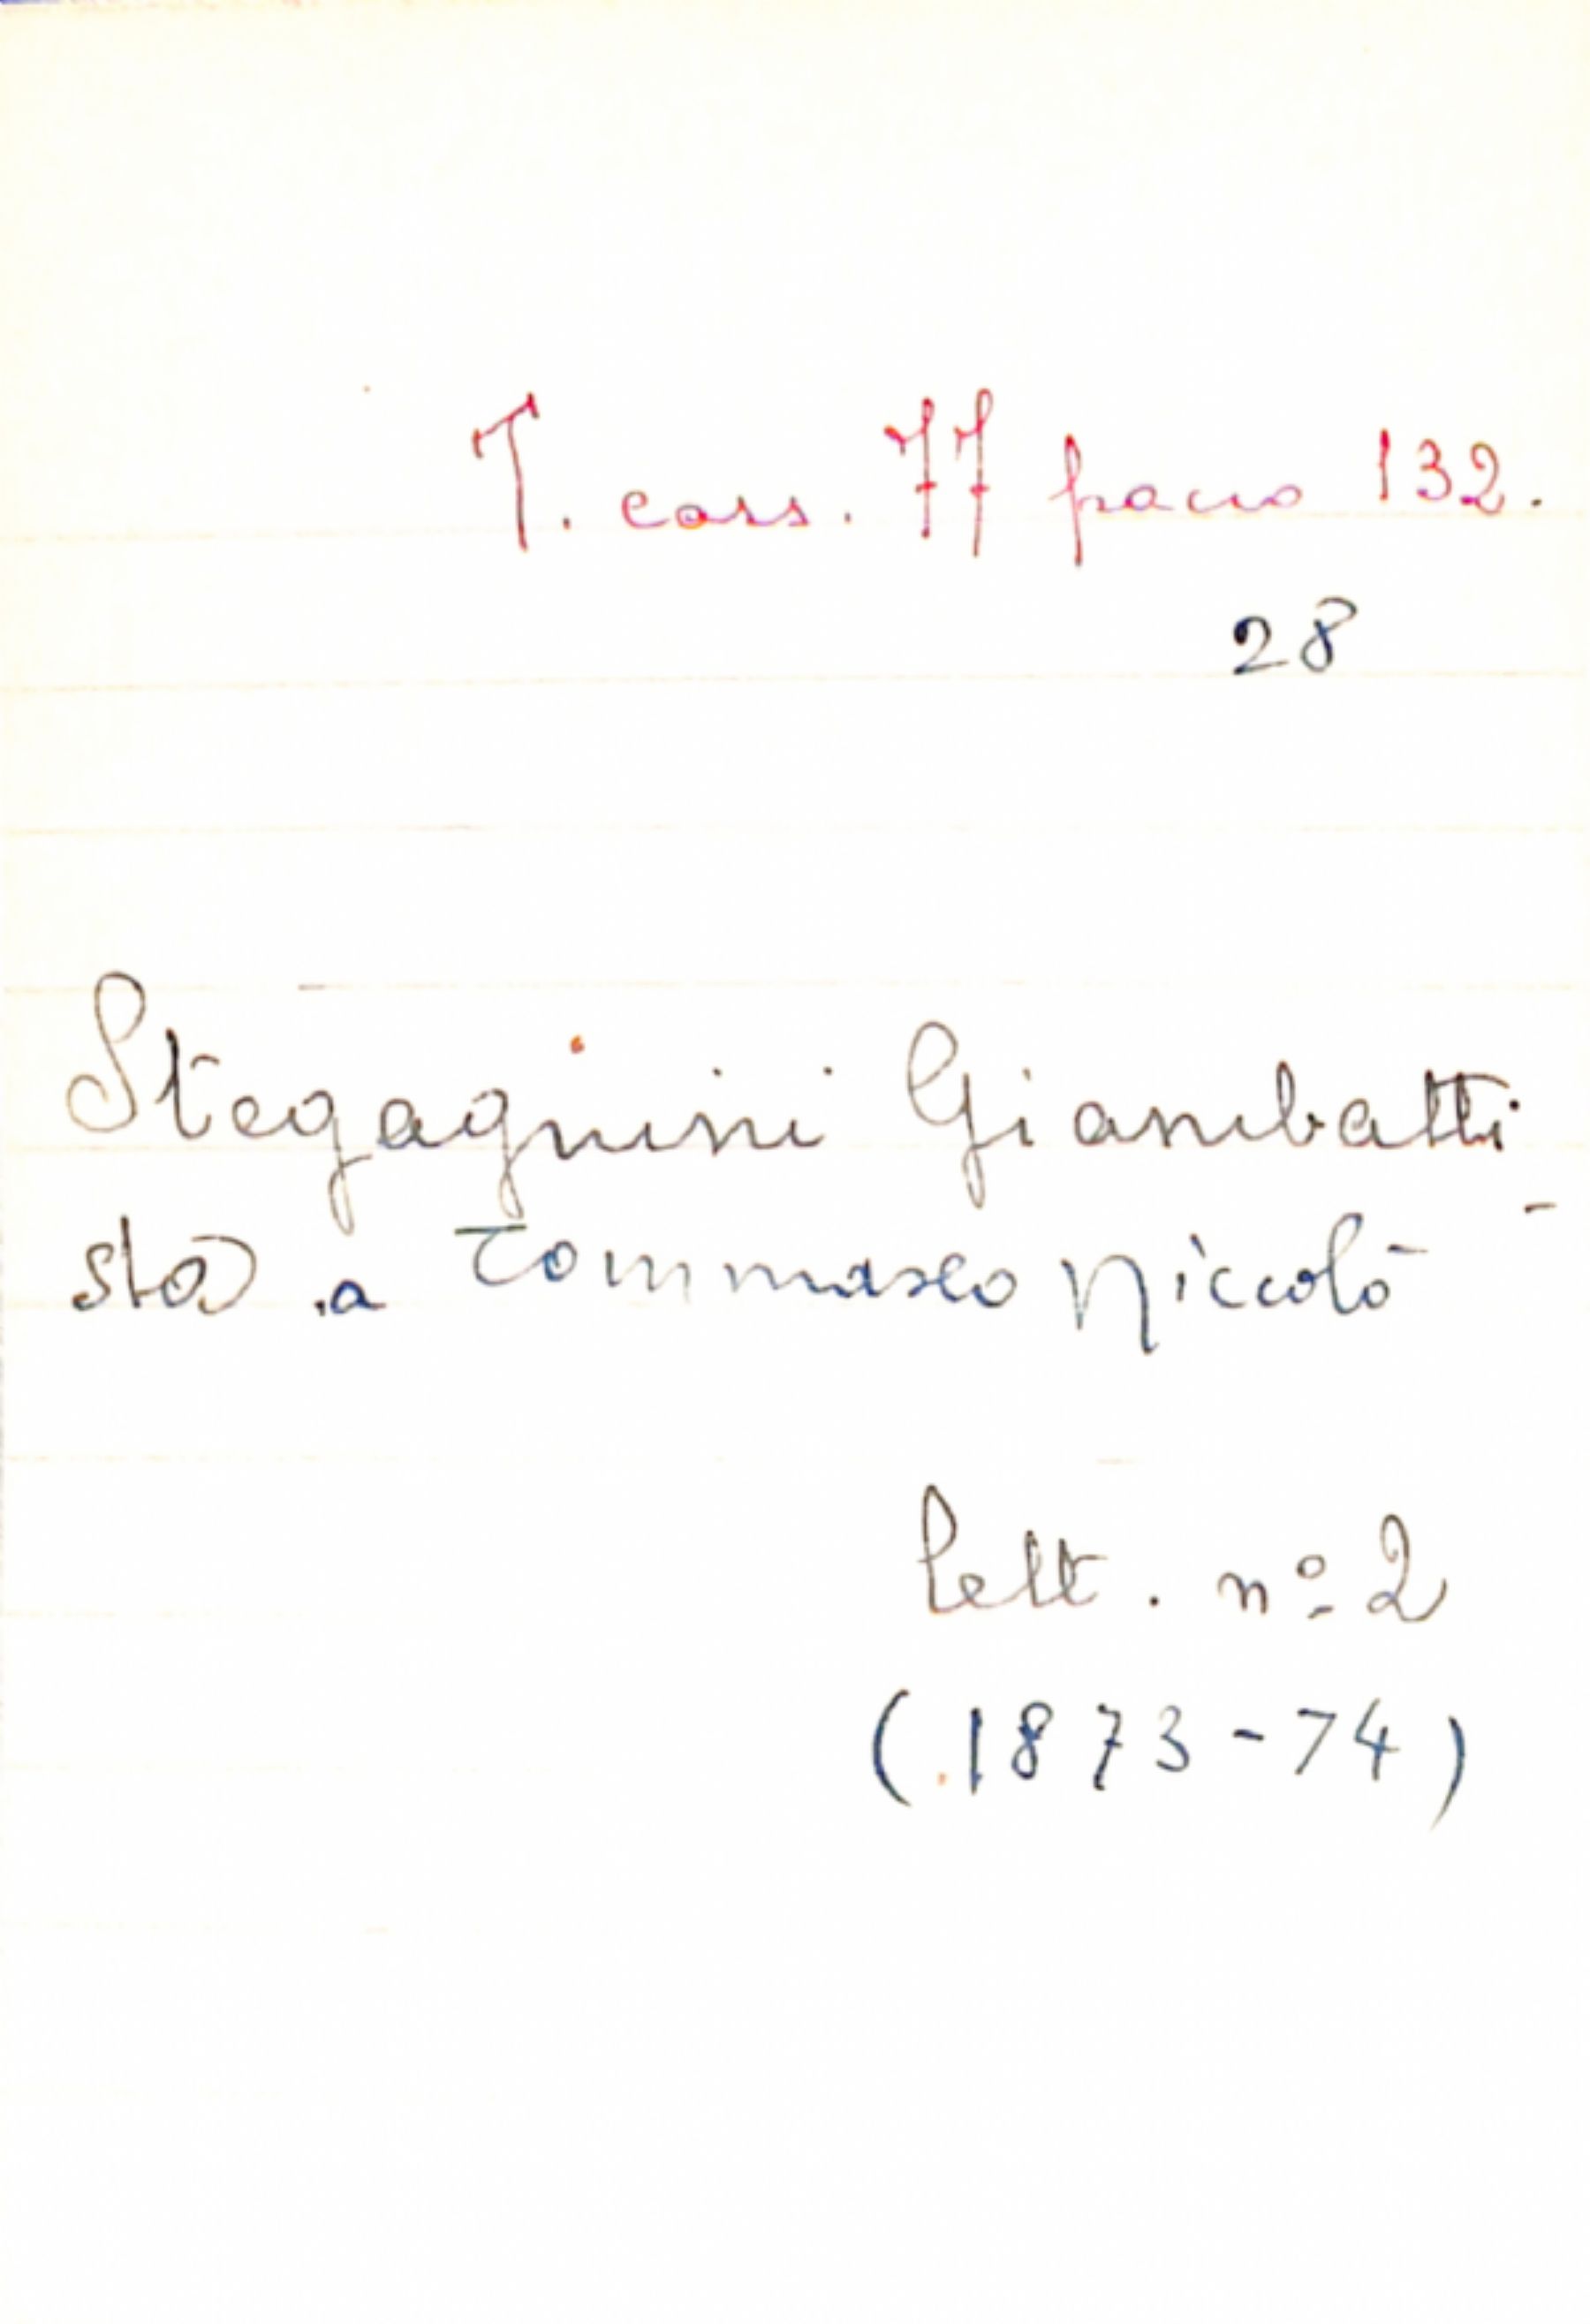 T. cass. 77 pacco 132.
28
Stegagnini Giambatti
sta a Tommaseo Niccolò
lett. nº 2
(1873-74)